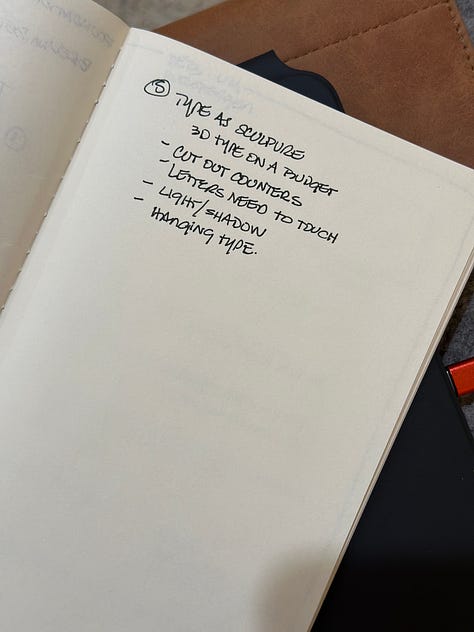 ⑤ TYPE AS SCULPURE
3D TYPE ON A BUDGET
- CUT OUT COUNTERS
- LETTERS NEED TO TOUCH
- LIGHT/SHADOW
- HANGING TYPE.